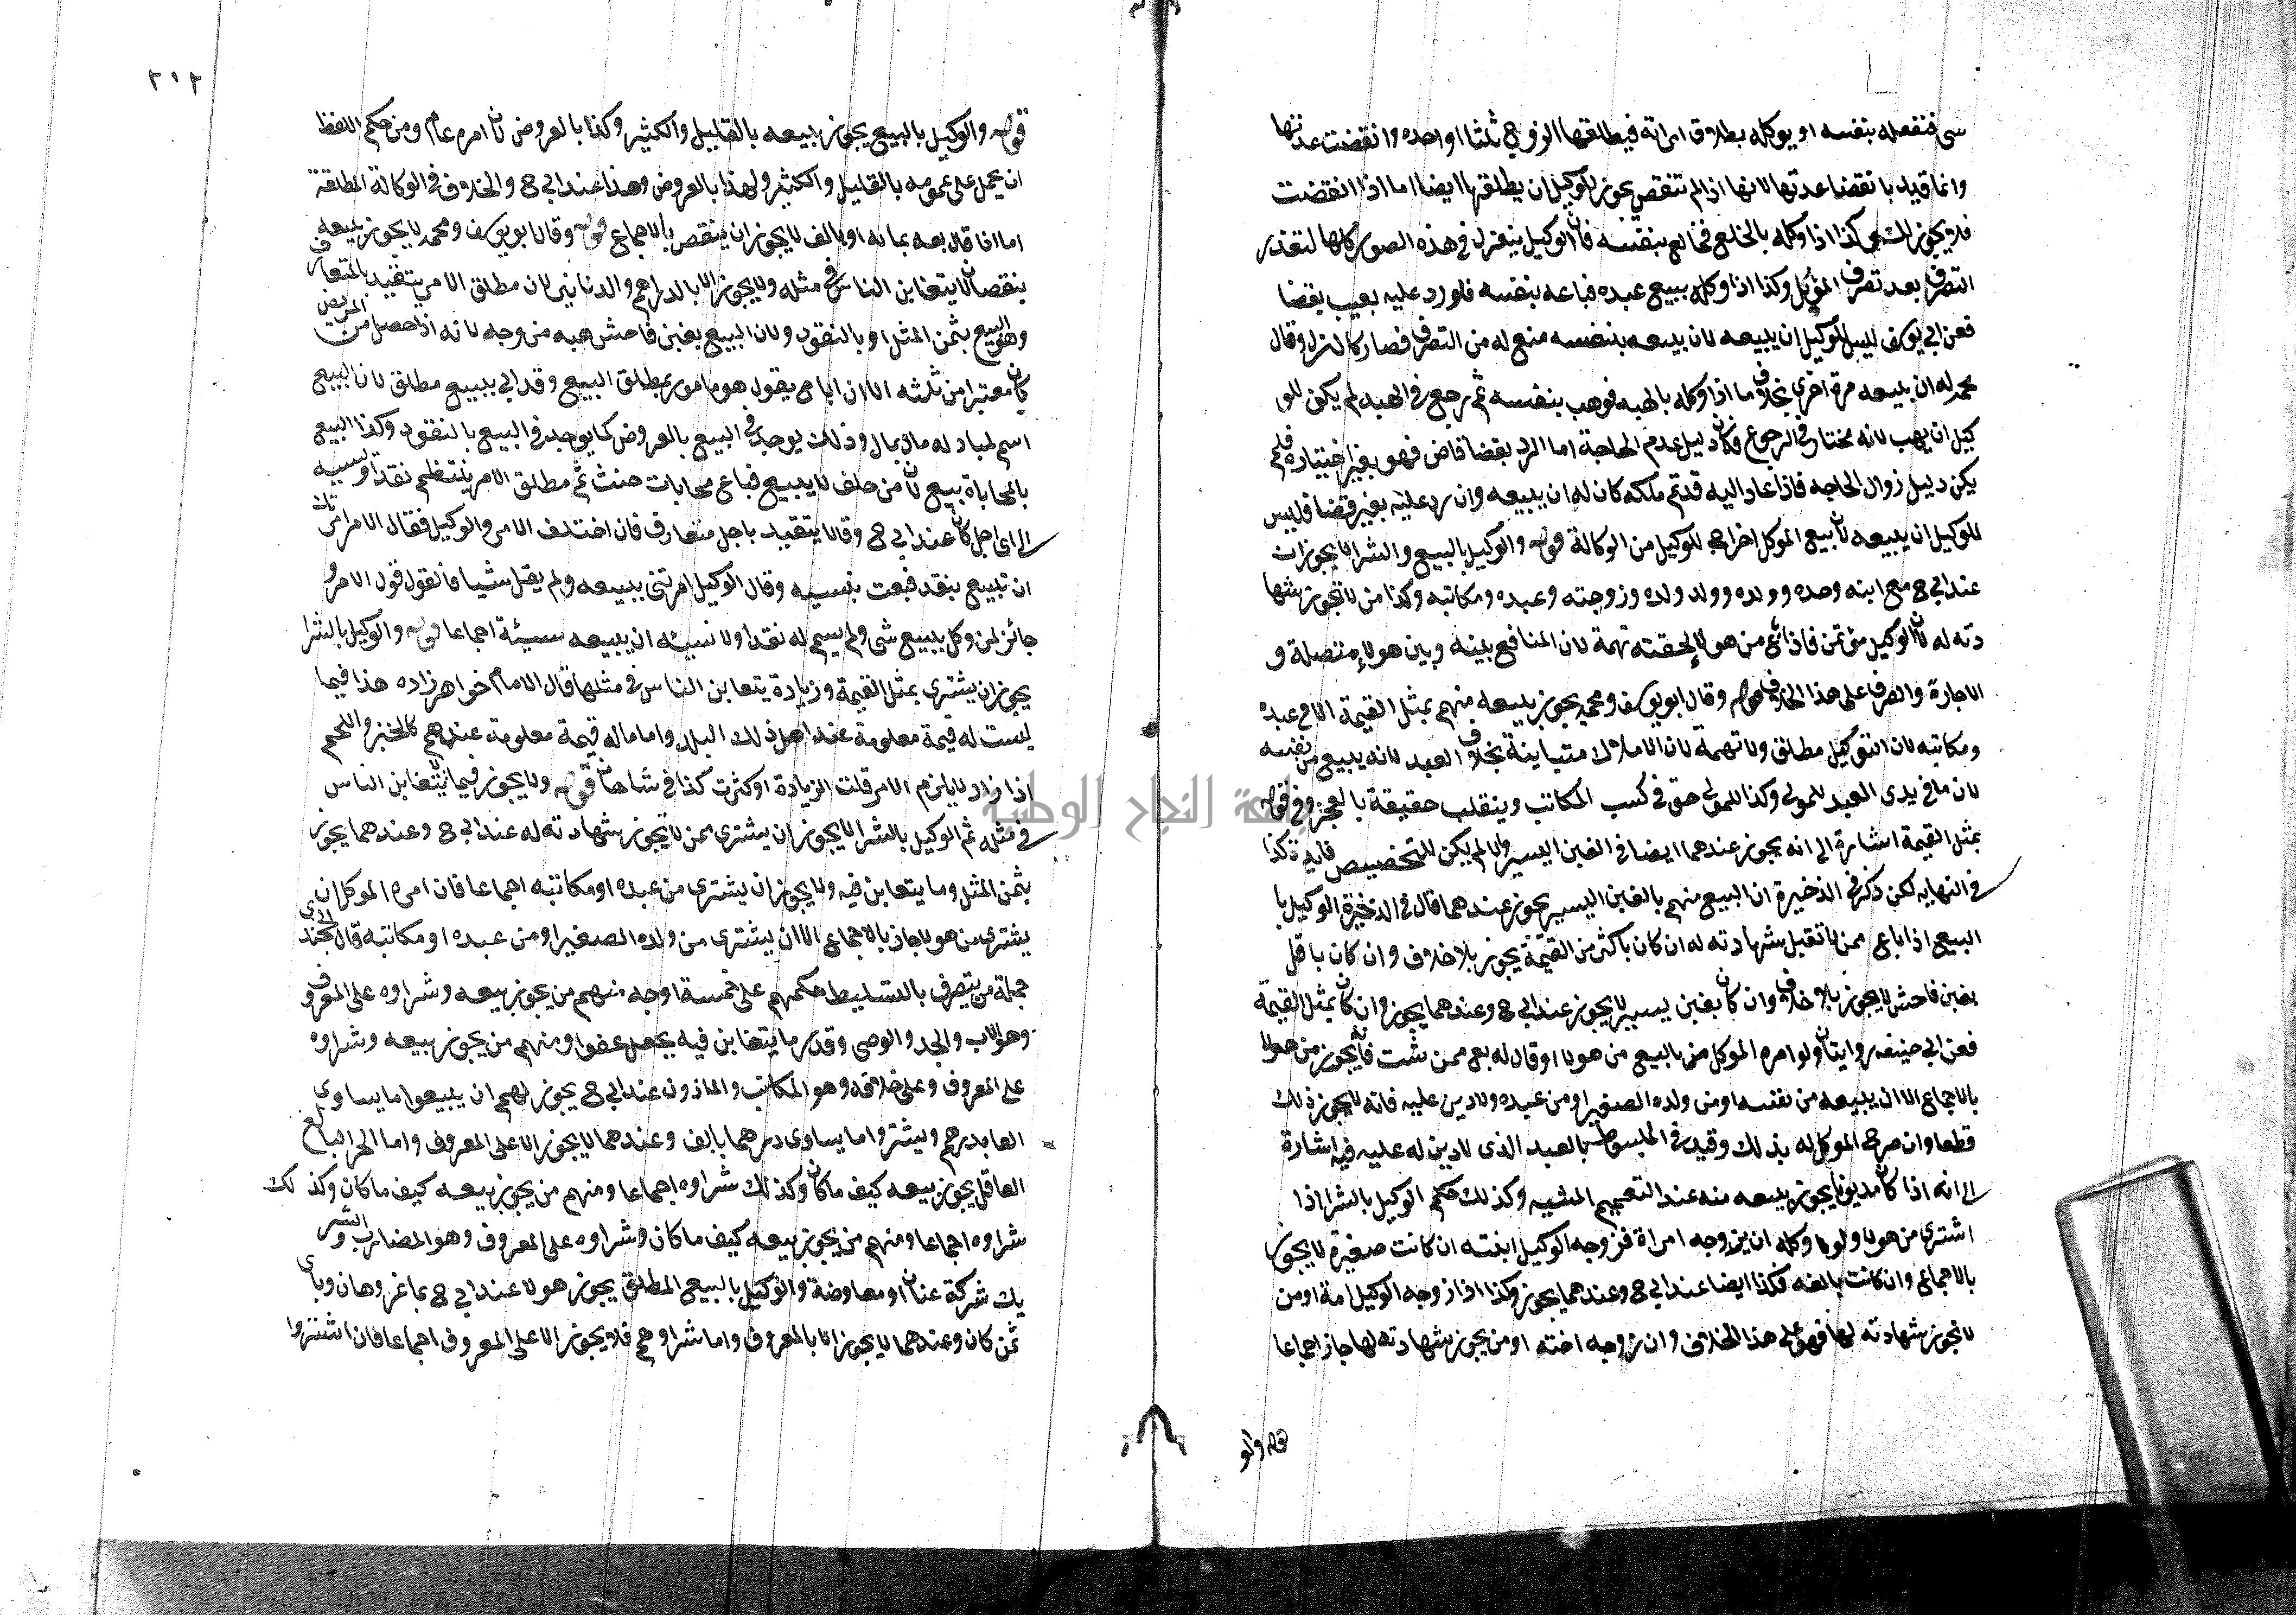 شى فتفعله بنفسه او يوكله بطلاق امراته فيطلقها الزوج ثلثا او احده وانقضت عدتها
وانما قيد بانقضا عدتها لانها اذا لم تنقض يجوز للوكيل ان يطلقها ايضا اما اذا انقضت
فلا يجوز له وكذا اذا وكله بالخلع فخالع بنفسه فان الوكيل ينعزل فى هذه الصور كلها لتعذر
التصرف بعد تصرف الموكل وكذا اذا وكله ببيع عبده فباعه بنفسه فلو رد عليه بعيب بقضا
فعن ابى يوسف ليس للوكيل ان يبيعه لان بيعه بنفسه منع له من التصرف فصار كالعزل وقال
محمد له ان يبيعه مرة اخرى بخلاف ما اذا وكله بالهبه فوهب بنفسه ثم رجع فى الهبه لم يكن للو
كيل ان يهب لانه مختار فى الرجوع فكان دليل عدم الحاجة اما الرد بقضا قاض فهو بغير اختياره فلم
يكن دليل زوال الحاجه فاذا عاد اليه قديم ملكه كان له ان يبيعه وان رد عليه بغير قضا فليس
للوكيل ان يبيعه لان بيع الموكل اخراج للوكيل من الوكالة قوله والوكيل بالبيع والشرا لا يجوز ان
عند ابى ح مع ابيه وجده وولده وولد ولده وزوجته وعبده ومكاتبه وكذا من لا تجوز شها
دته له لان الوكيل مؤتمن فاذا باع من هولا لحقته تهمة لان المنافع بينه وبين هولاء متصلة و
الاجارة والصرف على هذا الخلاف قوله وقال ابو يوسف ومحمد يجوز بيعه منهم بمثل القيمة الا مع عبده
ومكاتبه لان التوكيل مطلق ولا تهمة لان الاملاك متباينة بخلاف العبد لانه يبيع من نفسه
لان ما فى يدى العبد للمولى وكذا للمولى حق فى كسب المكاتب وينقلب حقيقة بالعجز وفى قوله
بمثل القيمة اشارة الى انه يجوز عندهما ايضا فى الغبن اليسير والا لم يكن للتخصيص فايدة كذا
فى النهايه لكن ذكر فى الذخيرة ان البيع منهم بالغبن اليسير يجوز عندهما قال فى الذخيرة الوكيل با
البيع اذا باع ممن لا تقبل شهادته له ان كان باكثر من القيمة يجوز بلا خلاف وان كان باقل
بغبن فاحش لا يجوز بلا خلاف وان كان بغبن يسير لا يجوز عند ابى ح وعندهما يجوز وان كان بمثل القيمة
فعن ابى حنيفه روايتان ولو امره الموكل بالبيع من هولا او قال له بع ممن شت فانه يجوز من هولا
بالاجماع الا ان يبيعه من نفسه او من ولده الصغير او من عبده ولا دين عليه فانه لا يجوز ذلك
قطعا وان صرح الموكل له بذلك وقيد فى المبسوط بالعبد الذى لا دين له عليه فيه اشارة
الى انه اذا كان مديونا يجوز بيعه منه عند التعميم المشيه وكذلك حكم الوكيل بالشرا اذا
اشترى من هولا ولو وكله ان يزوجه امراة فزوجه الوكيل ابنته ان كانت صغيرة لا يجوز
بالاجماع وان كانت بالغه فكذا ايضا عند ابى ح وعندهما يجوز وكذا اذا زوجه الوكيل امة او من
لا تجوز شهادته لها فهو على هذا الخلاف وان زوجه اخته او من يجوز شهادته لها جاز اجماعا
قوله والو
٢١٢
قوله والوكيل بالبيع يجوز بيعه بالقليل والكثير وكذا بالعروض لان امره عام ومن حكم اللفظ
ان يحمل على عمومه بالقليل والكثير ولهذا بالعروض وهذا عند ابى ح والخلاف فى الوكالة المطلقة
اما اذا قال بعه بمائه او بالف لا يجوز ان ينقص بالاجماع قوله وقال ابو يوسف ومحمد لا يجوز بيعه
بنقصان لا يتغابن الناس فى مثله ولا يجوز الا بالدراهم والدنانير لان مطلق الامر يتقيد بالمتعارف
وهو البيع بثمن المثل او بالنقود ولان البيع بغبن فاحش هبه من وجه لانه اذا حصل من المريض
كان معتبرا من ثلثه الا ان ابا ح يقول هو مامور بمطلق البيع وقد اتى ببيع مطلق لان البيع
اسم لمبادله مال بمال وذلك يوجد فى البيع بالعروض كما يوجد فى البيع بالنقود وكذا البيع
بالمحاباة بيع لان من حلف لا يبيع فباع محابات حنث ثم مطلق الامر ينتظم نقدا ونسيه
الى اى اجل كان عند ابى ح وقالا يتقيد باجل متعارف فان اختلف الامر والوكيل فقال الامر امرتك
ان تبيع بنقد فبعت بنسيه وقال الوكيل امرتنى ببيعه ولم يقل شيا فالقول قول الامر و
جائز لمن وكل ببيع شى ولم يسم له نقدا ولا نسيئه ان يبيعه نسيئة اجماعا قوله والوكيل بالشرا
يجوز ان يشترى بمثل القيمة وزيادة يتغابن الناس فى مثلها قال الامام خواهر زاده هذا فيما
ليست له قيمة معلومة عند اهل ذلك البلد واما ماله قيمة معلومة عندهم كالخبز واللحم
اذا زاد لا يلزم الامر قلت الزيادة او كثرت كذا فى شاهان قوله ولا يجوز فيما لا يتغابن الناس
فى مثله ثم الوكيل بالشرا لا يجوز ان يشترى ممن لا تجوز شهادته له عند ابى ح وعندهما يجوز
بثمن المثل وما يتغابن فيه ولا يجوز ان يشترى من عبده او مكاتبه اجماعا فان امره الموكل ان
يشترى من هولا جاز بالاجماع الا ان يشترى من ولده الصغير او من عبده او مكاتبه قال الخجندى
جملة من يتصرف بالتسليط حكمهم على خمسة اوجه منهم من يجوز بيعه وشراوه على المعروف
وهو الاب والجد والوصى وقدر ما يتغابن فيه يجعل عفوا ومنهم من يجوز بيعه وشراوه
على المعروف وعلى خلافه وهو المكاتب والماذون عند ابى ح يجوز لهم ان يبيعوا ما يساوى
الفا بدرهم ويشتروا ما يساوى درهما بالف وعندهما لا يجوز الا على المعروف واما الحر البالغ
العاقل يجوز بيعه كيف ما كان وكذلك شراوه اجماعا ومنهم من يجوز بيعه كيف ما كان وكذ لك
شراوه اجماعا ومنهم من يجوز بيعه كيف ما كان وشراوه على المعروف وهو المضارب والشر
يك شركة عنان او مفاوضة والوكيل بالبيع المطلق يجوز هولا عند ابى ح بما عز وهان وباى
ثمن كان وعندهما لا يجوز الا بالمعروف واما شراوهم فلا يجوز الا على المعروف اجماعا فان اشتروا
جامعة النجاح الوطنية